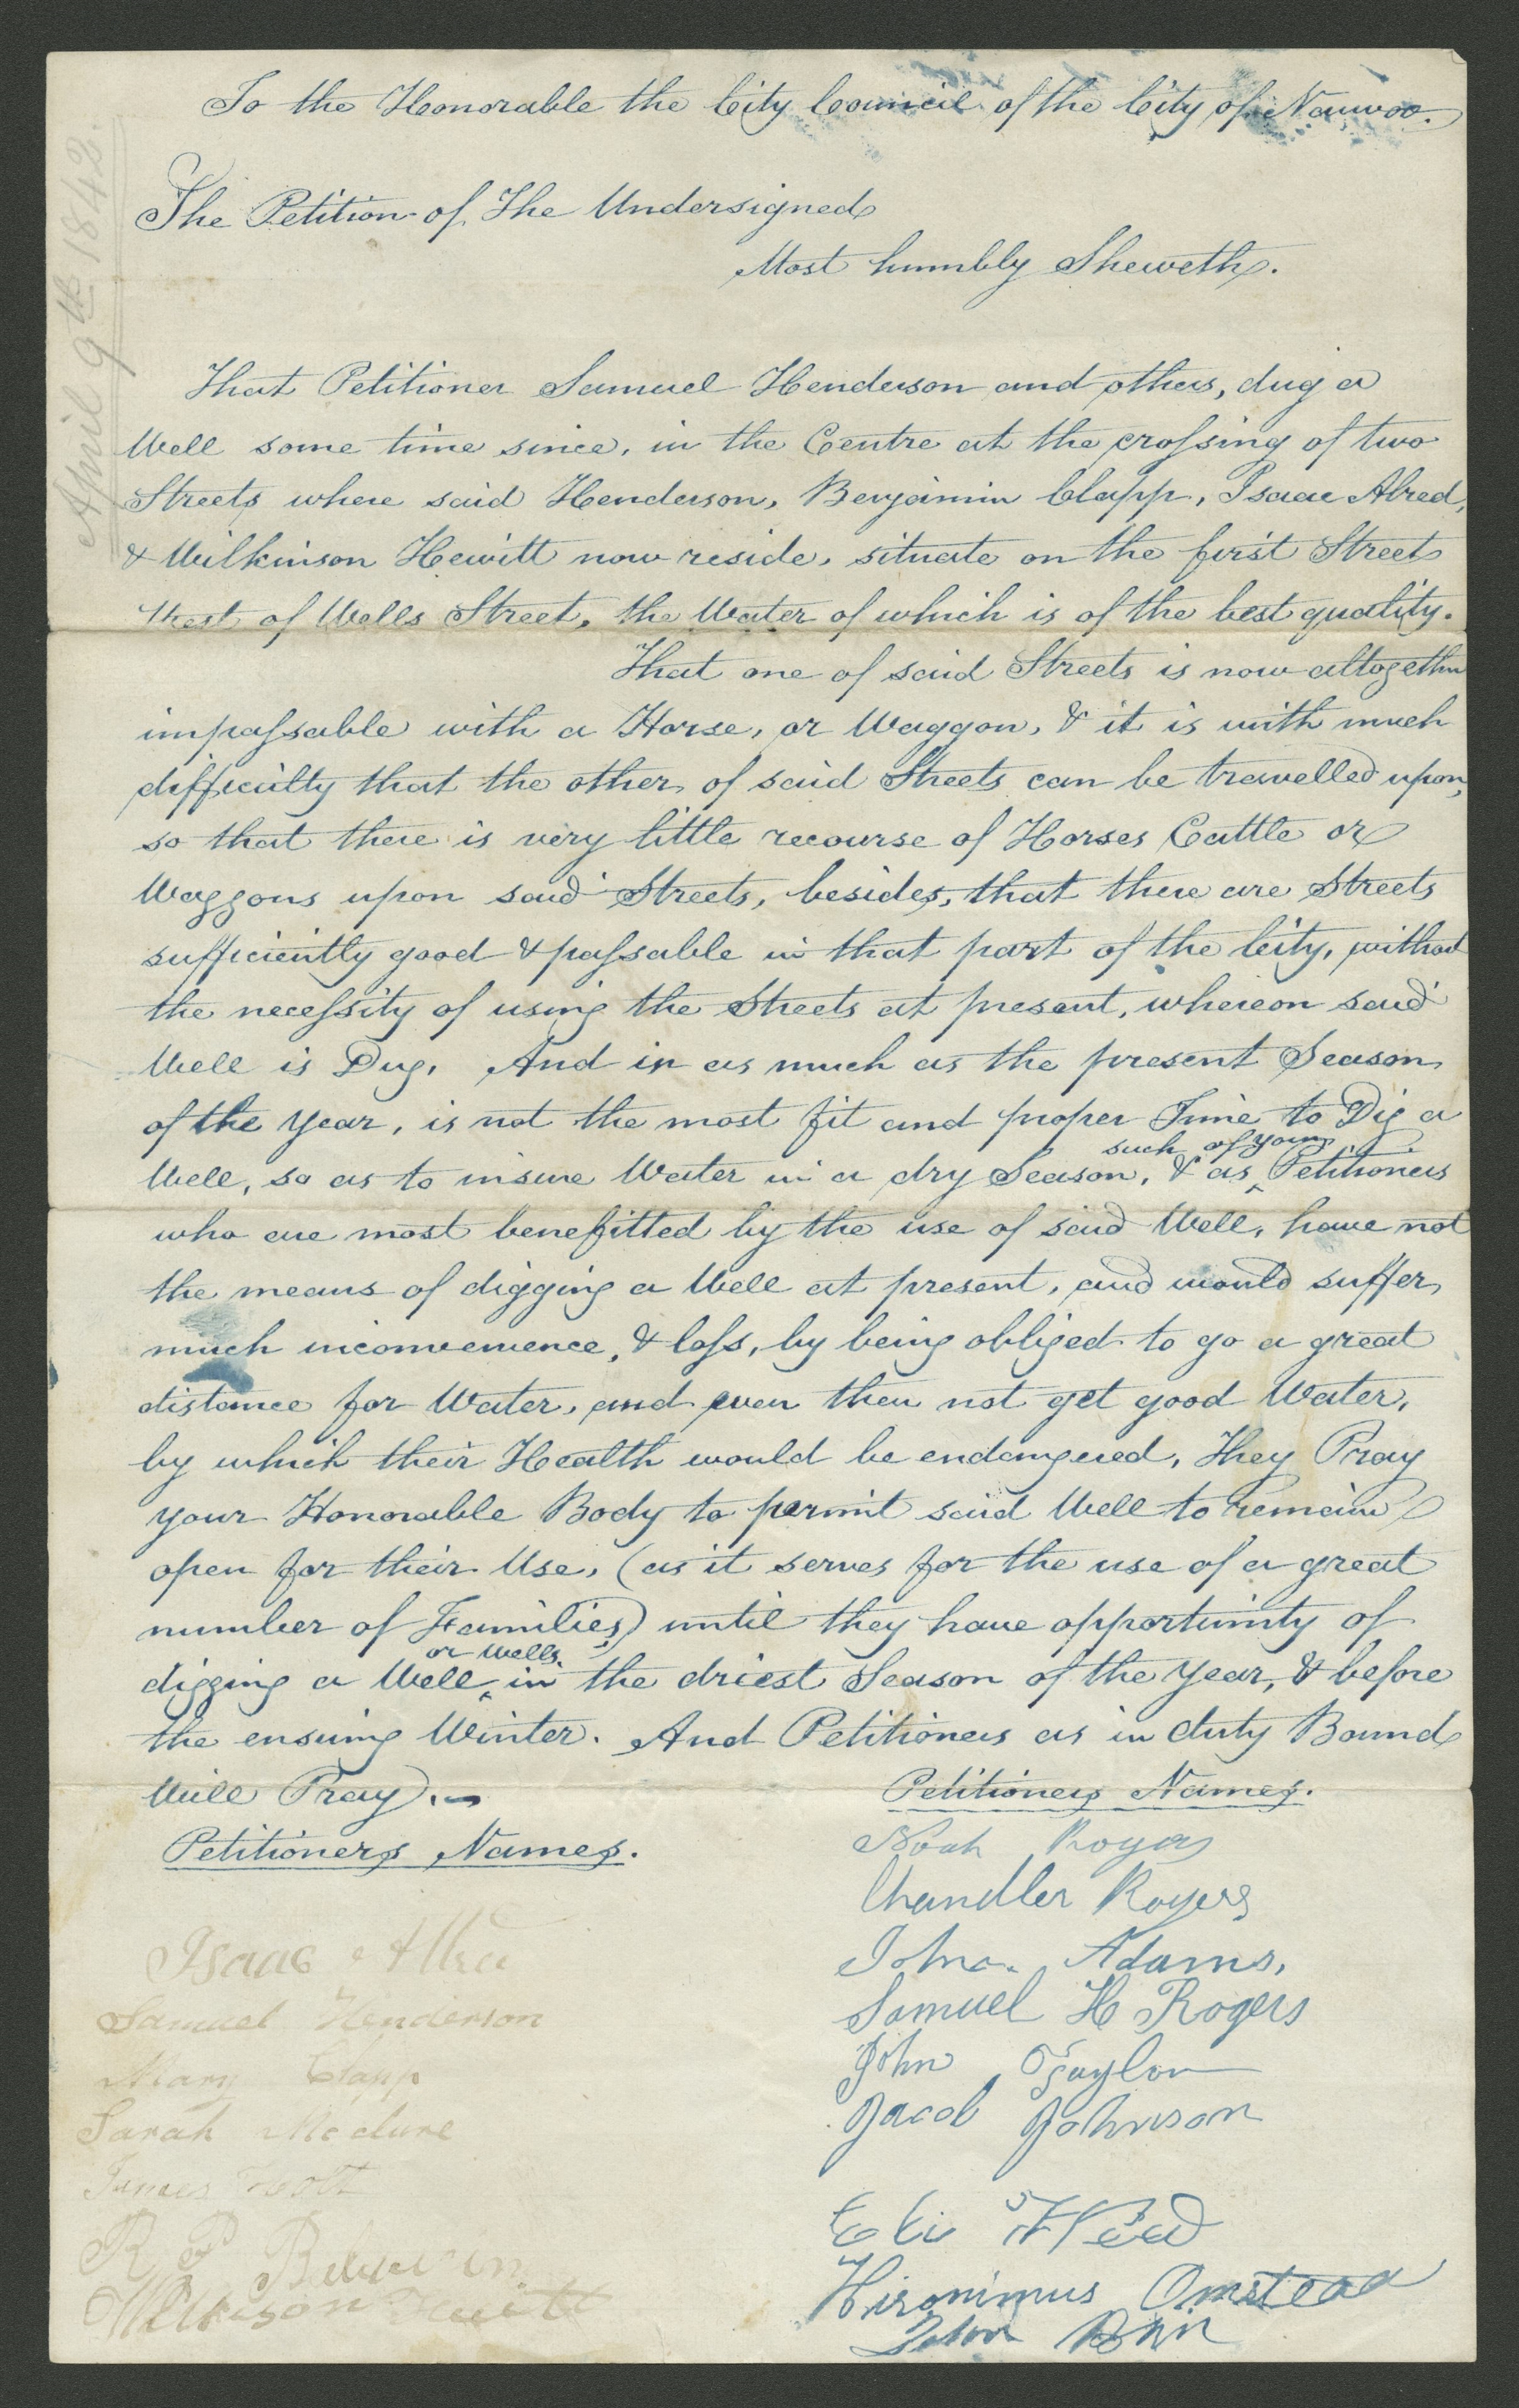 April 9th 1842.
To the Honorable the City Council of the City of Nauvoo.
The Petition of The Undersigned
Most humbly Sheweth.
That Petitioner Samuel Henderson and others, dug a
Well some time since, in the Centre at the crossing of two
Streets where said Henderson, Benjamin Clapp, Isaac Alred,
& Wilkinson Hewitt now reside, situate on the first Street
West of Wells Street, the Water of which is of the best quality.
That one of said Streets is now altogether
impassable with a Horse, or Waggon, & it is with much
difficulty that the other of said Streets can be travelled upon,
so that there is very little recourse of Horses Cattle or
Waggons upon said Streets, besides, that there are Streets
sufficiently good & passable in that part of the City, without
the necessity of using the Streets at present, whereon said
Well is Dug, And in as much as the present Season
of the Year, is not the most fit and proper Time to Dig a
such of your
Well, so as to insure Water in a dry Season, & as Petitioners
who are most benefitted by the use of said Well, have not
the means of digging a Well at present, and would suffer
much inconvenience, & loss, by being obliged to go a great
distance for Water, and even then not get good Water,
by which their Health would be endangered, They Pray
your Honorable Body to permit said Well to remain
open for their Use, (as it serves for the use of a great
number of Families) until they have opportunity of
or Wells,
digging a Well in the driest Season of the Year, & before
the ensuing Winter. And Petitioners as in duty Bound
Will Pray).
Petitioners Names.
Isaac
Samuel Henderson
Mary Clapp
Sarah Mcclure
James
R P
Wilkison
Petitioners Names.
Noah Rogers
Chandler Rogers
John Adams,
Samuel H Rogers
John Taylor
Jacob Johnson
Eli
Hironimus Omstead
John